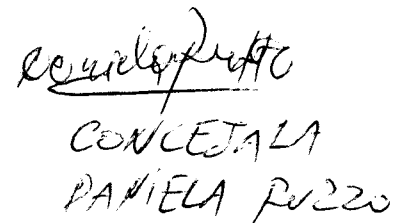 CONCEJALA
DANIELA RUZZO